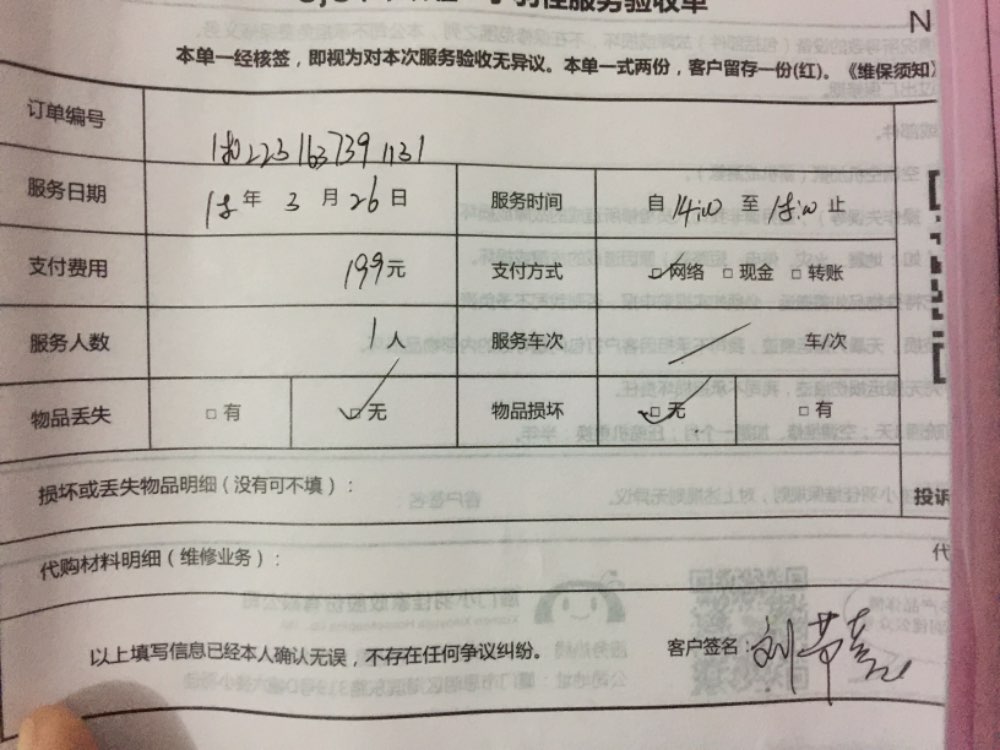 小羽佳服务验收单
N
本单一经核签，即视为对本次服务验收无异议。本单一式两份，客户留存一份(红)。《维保须知》
订单编号
服务日期 18 年 3 月 26 日 服务时间 自 14:00 至 18:00 止
支付费用 199元 支付方式 ☑网络 □ 现金 □ 转账
服务人数 1 人 服务车次 / 车/次
物品丢失 □ 有 ☑无 物品损坏 ☑无 □ 有
损坏或丢失物品明细（没有可不填）：
投诉
代购材料明细（维修业务）：
代
以上填写信息已经本人确认无误，不存在任何争议纠纷。 客户签名：刘